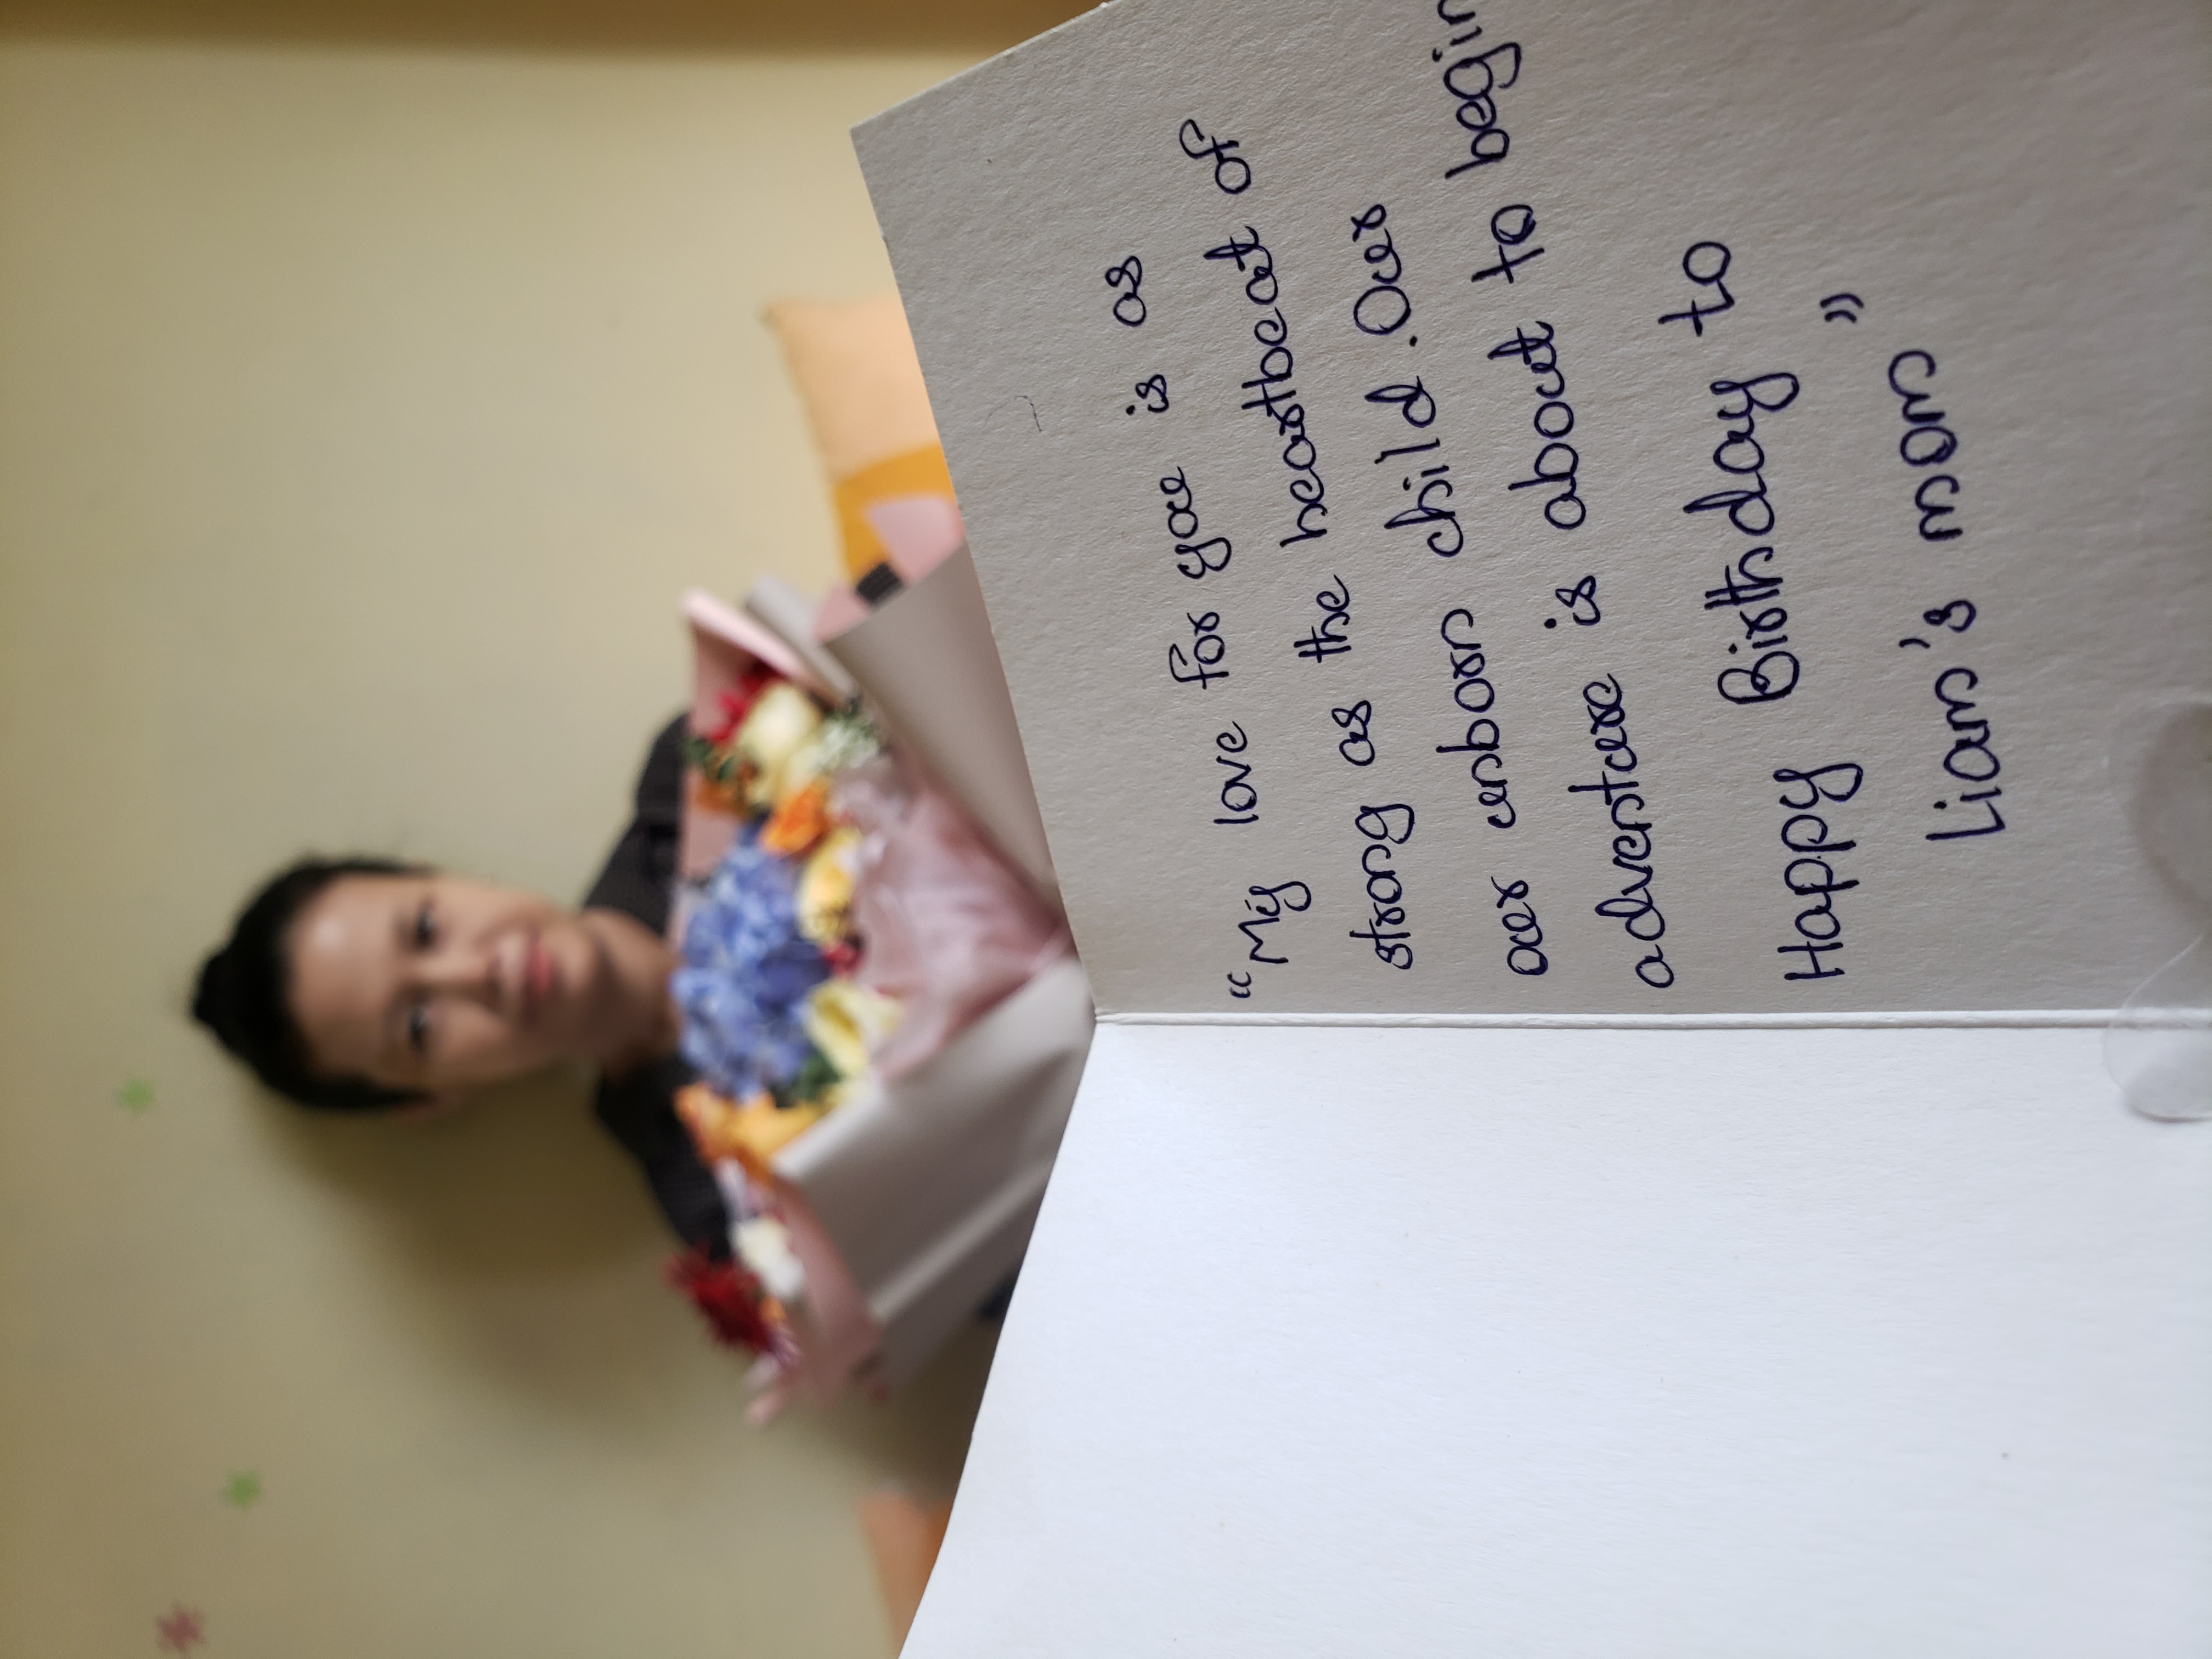 “My love for you is as
strong as the heartbeat of
our unborn child. Our
adventure is about to begin
Happy Birthday to
Liam's mom”